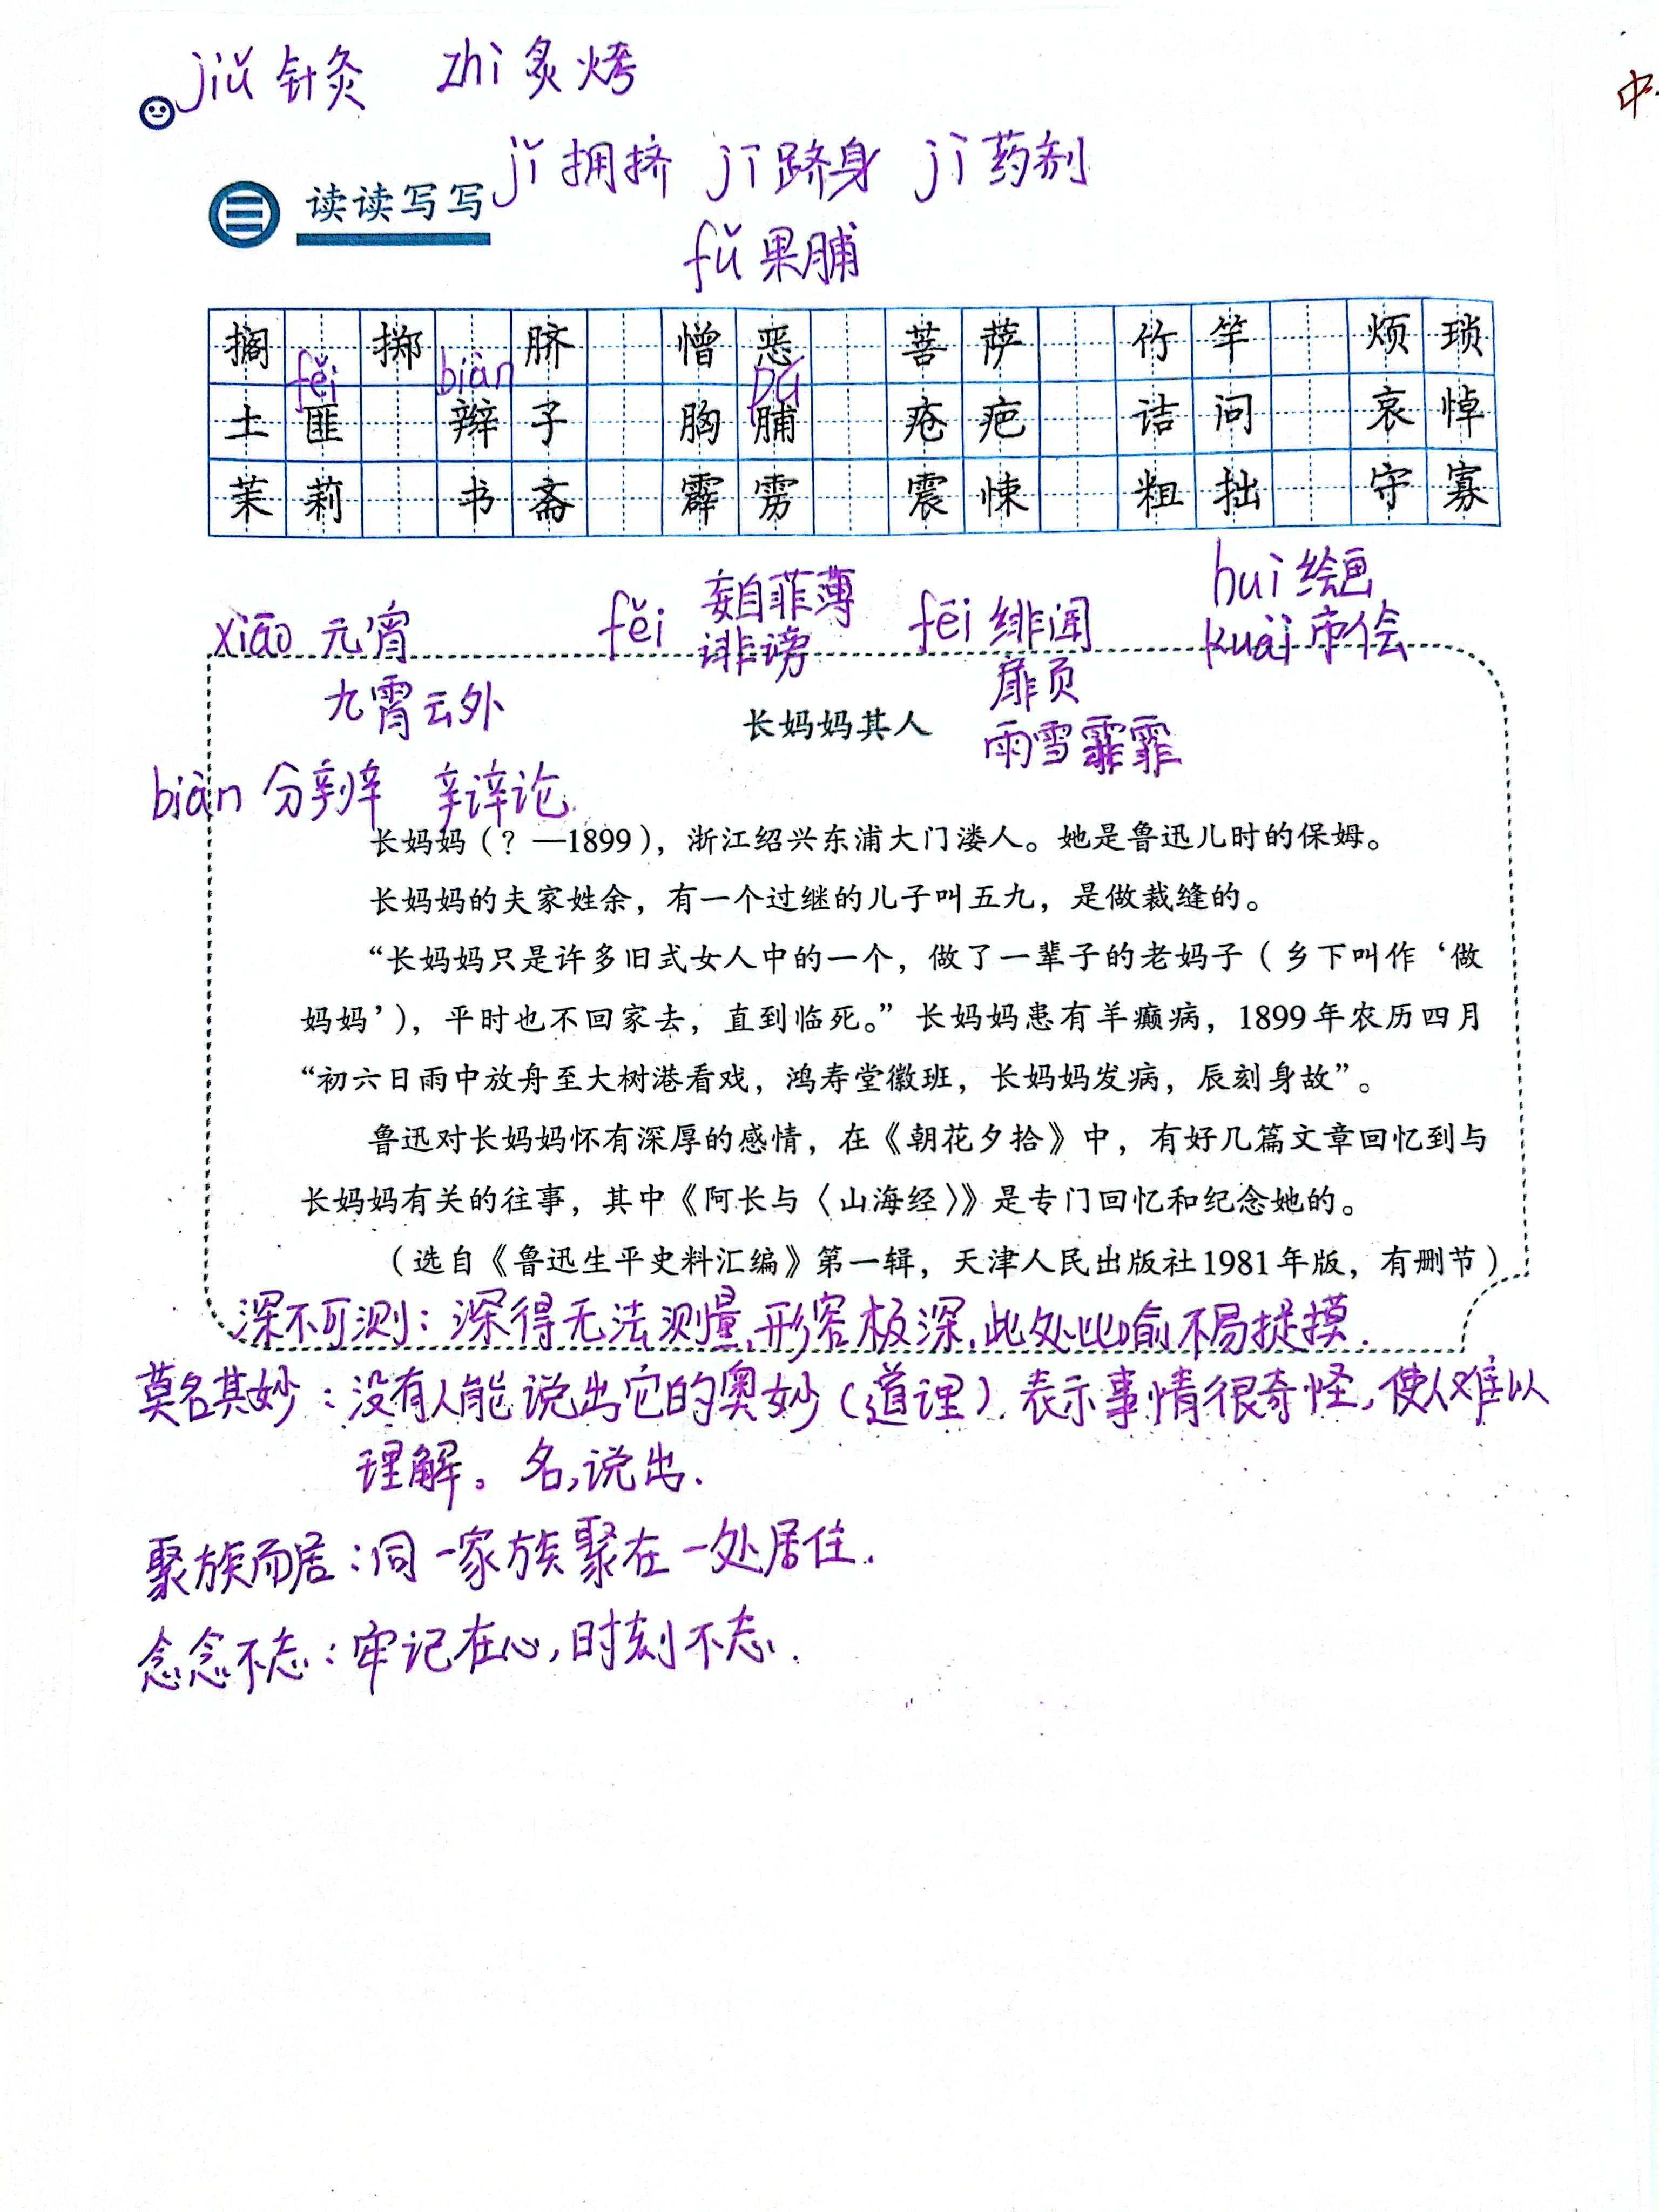 jiǔ 针灸 zhì 炙烤
中
jǐ 拥挤 jī 跻身 jì 药剂
读读写写
fǔ 果脯
搁 掷 脐 憎恶 菩萨 竹竿 烦琐
fěi biàn pú
土匪 辫子 胸脯 疮疤 诘问 哀悼
茉莉 书斋 霹雳 震悚 粗拙 守寡
huì 绘画
xiāo 元宵 fěi 妄自菲薄 fēi 绯闻 kuài 市侩
诽谤
九霄云外 扉页
长妈妈其人
雨雪霏霏
biàn 分辨 辩论
长妈妈（？—1899），浙江绍兴东浦大门溇人。她是鲁迅儿时的保姆。
长妈妈的夫家姓余，有一个过继的儿子叫五九，是做裁缝的。
“长妈妈只是许多旧式女人中的一个，做了一辈子的老妈子（乡下叫作‘做
妈妈’），平时也不回家去，直到临死。”长妈妈患有羊癫病，1899年农历四月
“初六日雨中放舟至大树港看戏，鸿寿堂徽班，长妈妈发病，辰刻身故”。
鲁迅对长妈妈怀有深厚的感情，在《朝花夕拾》中，有好几篇文章回忆到与
长妈妈有关的往事，其中《阿长与〈山海经〉》是专门回忆和纪念她的。
（选自《鲁迅生平史料汇编》第一辑，天津人民出版社1981年版，有删节）
深不可测：深得无法测量，形容极深，此处比喻不易捉摸．
莫名其妙：没有人能说出它的奥妙（道理）．表示事情很奇怪，使人难以
理解。名，说出．
聚族而居：同一家族聚在一处居住．
念念不忘：牢记在心，时刻不忘．